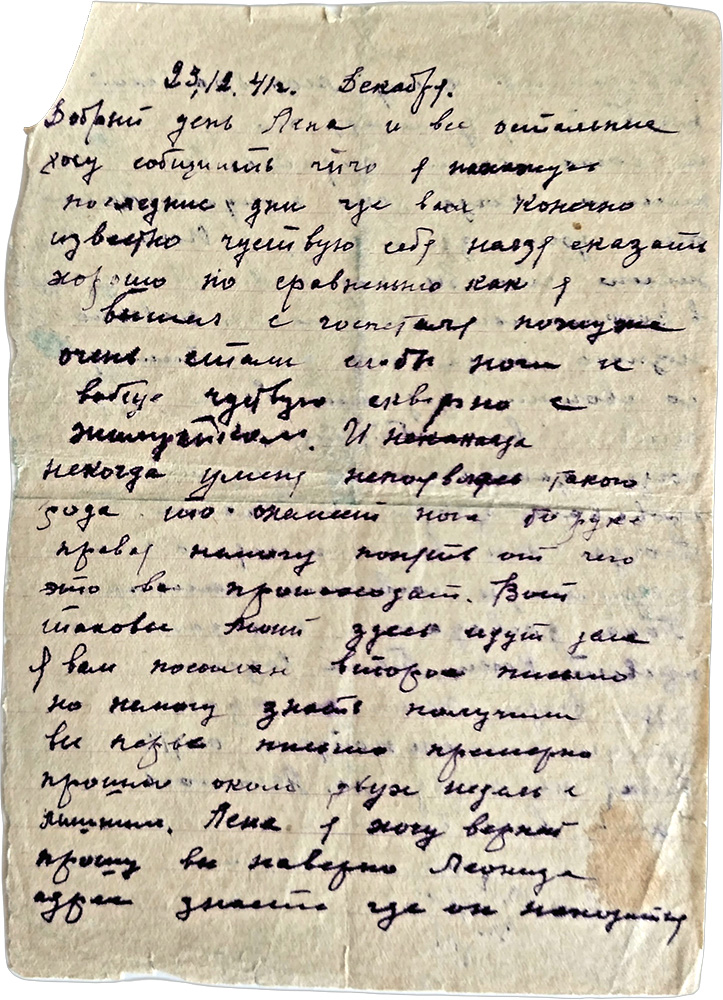 23.12.41г. Декабря.
Добрый день Лена и все остальные
хочу сообщить что я нахожусь
последние дни где вам конечно
известно чуствую себя нельзя сказать
хорошо по сравненью как я
вышел с госпеталя похуже
очень стали слабы ноги и
вобще чуствую скверно с
желудком. И
некогда у меня непоявлялось такого
рода что онемеет нога то рука
правая немогу понять от чего
это все происходит. Вот
таковы мои здесь идут дела
я вам посылал второе письмо
но немогу знать получили
вы первое письмо примерно
прошло около двух недель с
лишним. Лена я хочу
прошу вы наверно Леонида
адрес знаете где он находится